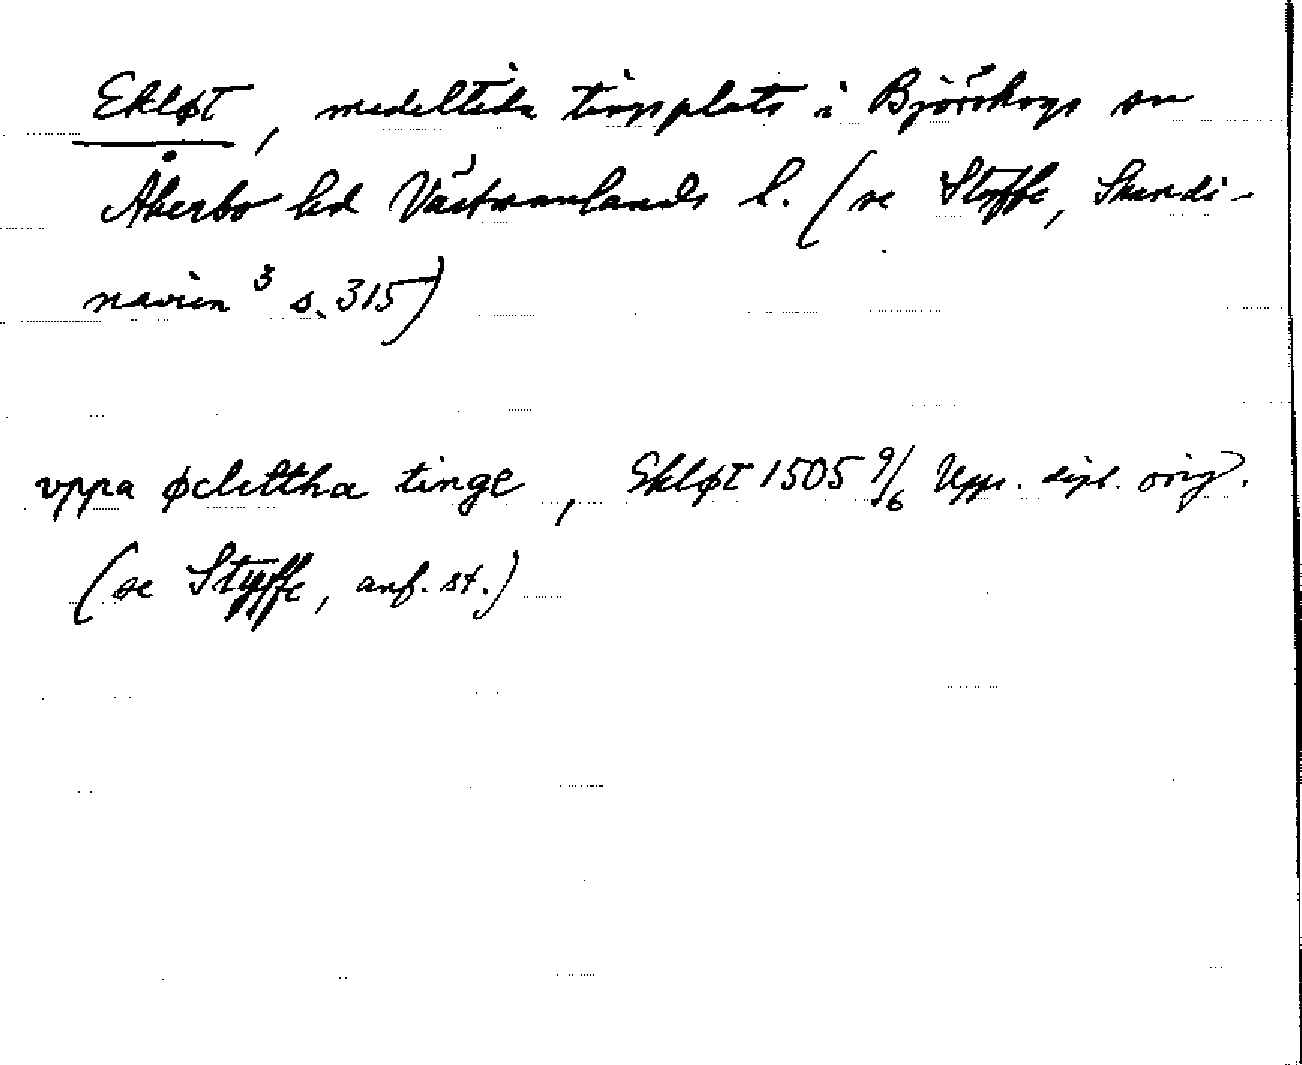 Ekløt, medeltida tingsplats i Björskogs sn
Åkerbo hd Västmanlands l. (se Styffe, Skandi-
navien ³ s. 315)
vppa øclettha tinge, Ekløt 1505 9/6 Upps. dipl. orig.
(se Styffe, anf. st.)